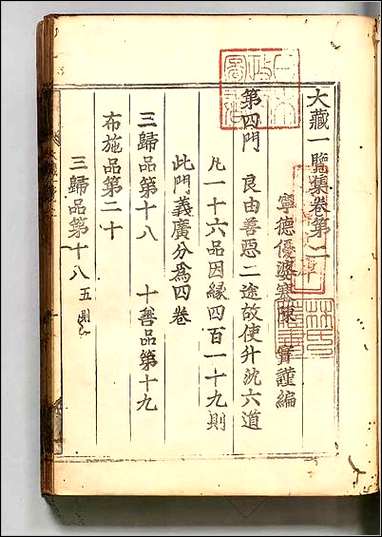 大藏一覽集卷第二
寧德優婆塞陳 實謹編
第四門 良由善惡二途故使升沈六道
凡一十六品因緣四百一十九則
此門義廣分爲四卷
三歸品第十八 十善品第十九
布施品第二十
三歸品第十八 五則